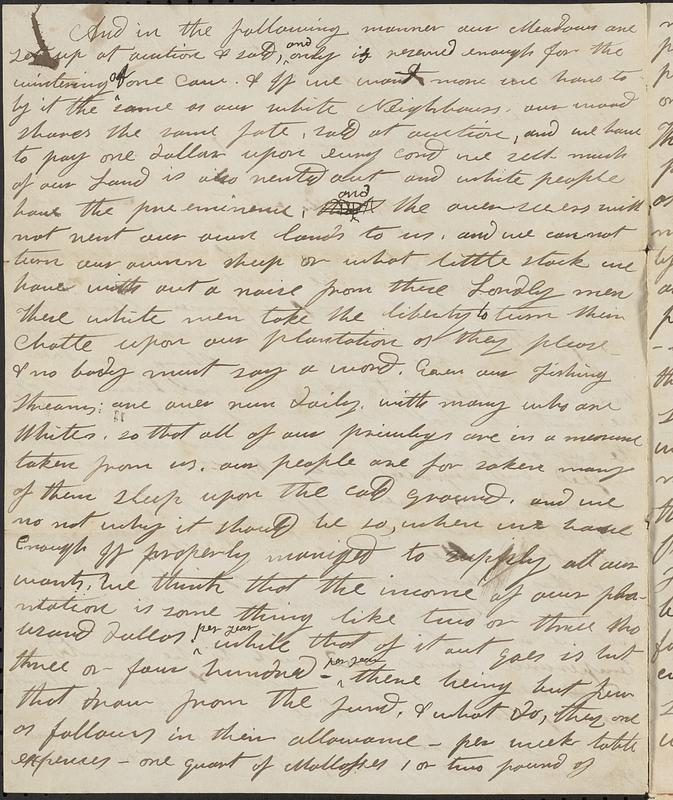 And in the following manner our Meadows are
set up at auction & sold, and only is reserved enough for the
wintering of one Cow. & If we want more we have to
by it the same as our white Neighbours. our wood
shares the same fate, sold at auction, and we have
to pay one dollar upon every cord we sell. much
of our Land is also rented out and white people
have the pre eminence, and the overseeers will
not rent our own lands to us. and we can not
turn our ownen sheep or what little stock we
have with out a noise from these Lordly men
These white men take the liberty to turn their
Chattle upon our plantation as they please
& no body must say a word. Even our fishing
streams; are over run daily. with many who are
Whites. so that all of our priviliges are in a measure
taken from us. our people are for saken many
of them sleep upon the cold ground. and we
no not why it should be so, when we have
Enough if properly maniged to supply all our
wants. We think that the income of our plan-
ntation is some thing like two or three tho
usand dollars per year while that of it out goes is but
three or four hundred - per year there being but few
that draw from the fund. & what do, they are
as follows in their allowance - per week table
expenses - one quart of Mollasses 1 or two pound of